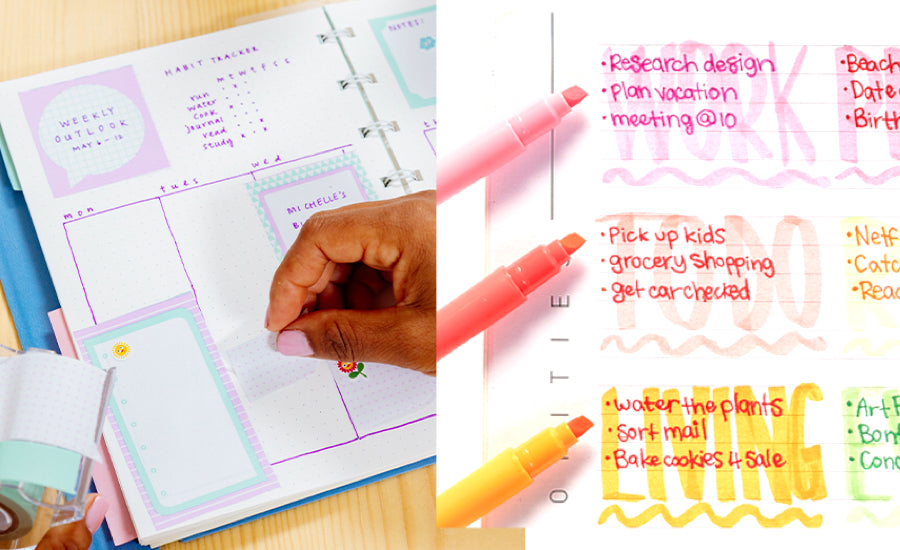 NOTES:
HABIT TRACKER
m t w t f s s
run
water
cook
journal
read
study
WEEKLY
OUTLOOK
MAY 6-12
mon
tues
wed
MICHELLE'S
WORK
•Research design
•plan vacation
•meeting @ 10
•Beach
•Date
•Birth
TO DO
•Pick up kids
•grocery shopping
•get car checked
•Netf
•Catc
•Read
LIVING
•water the plants
•Sort mail
•Bake cookies 4 sale
•Art
•Cond